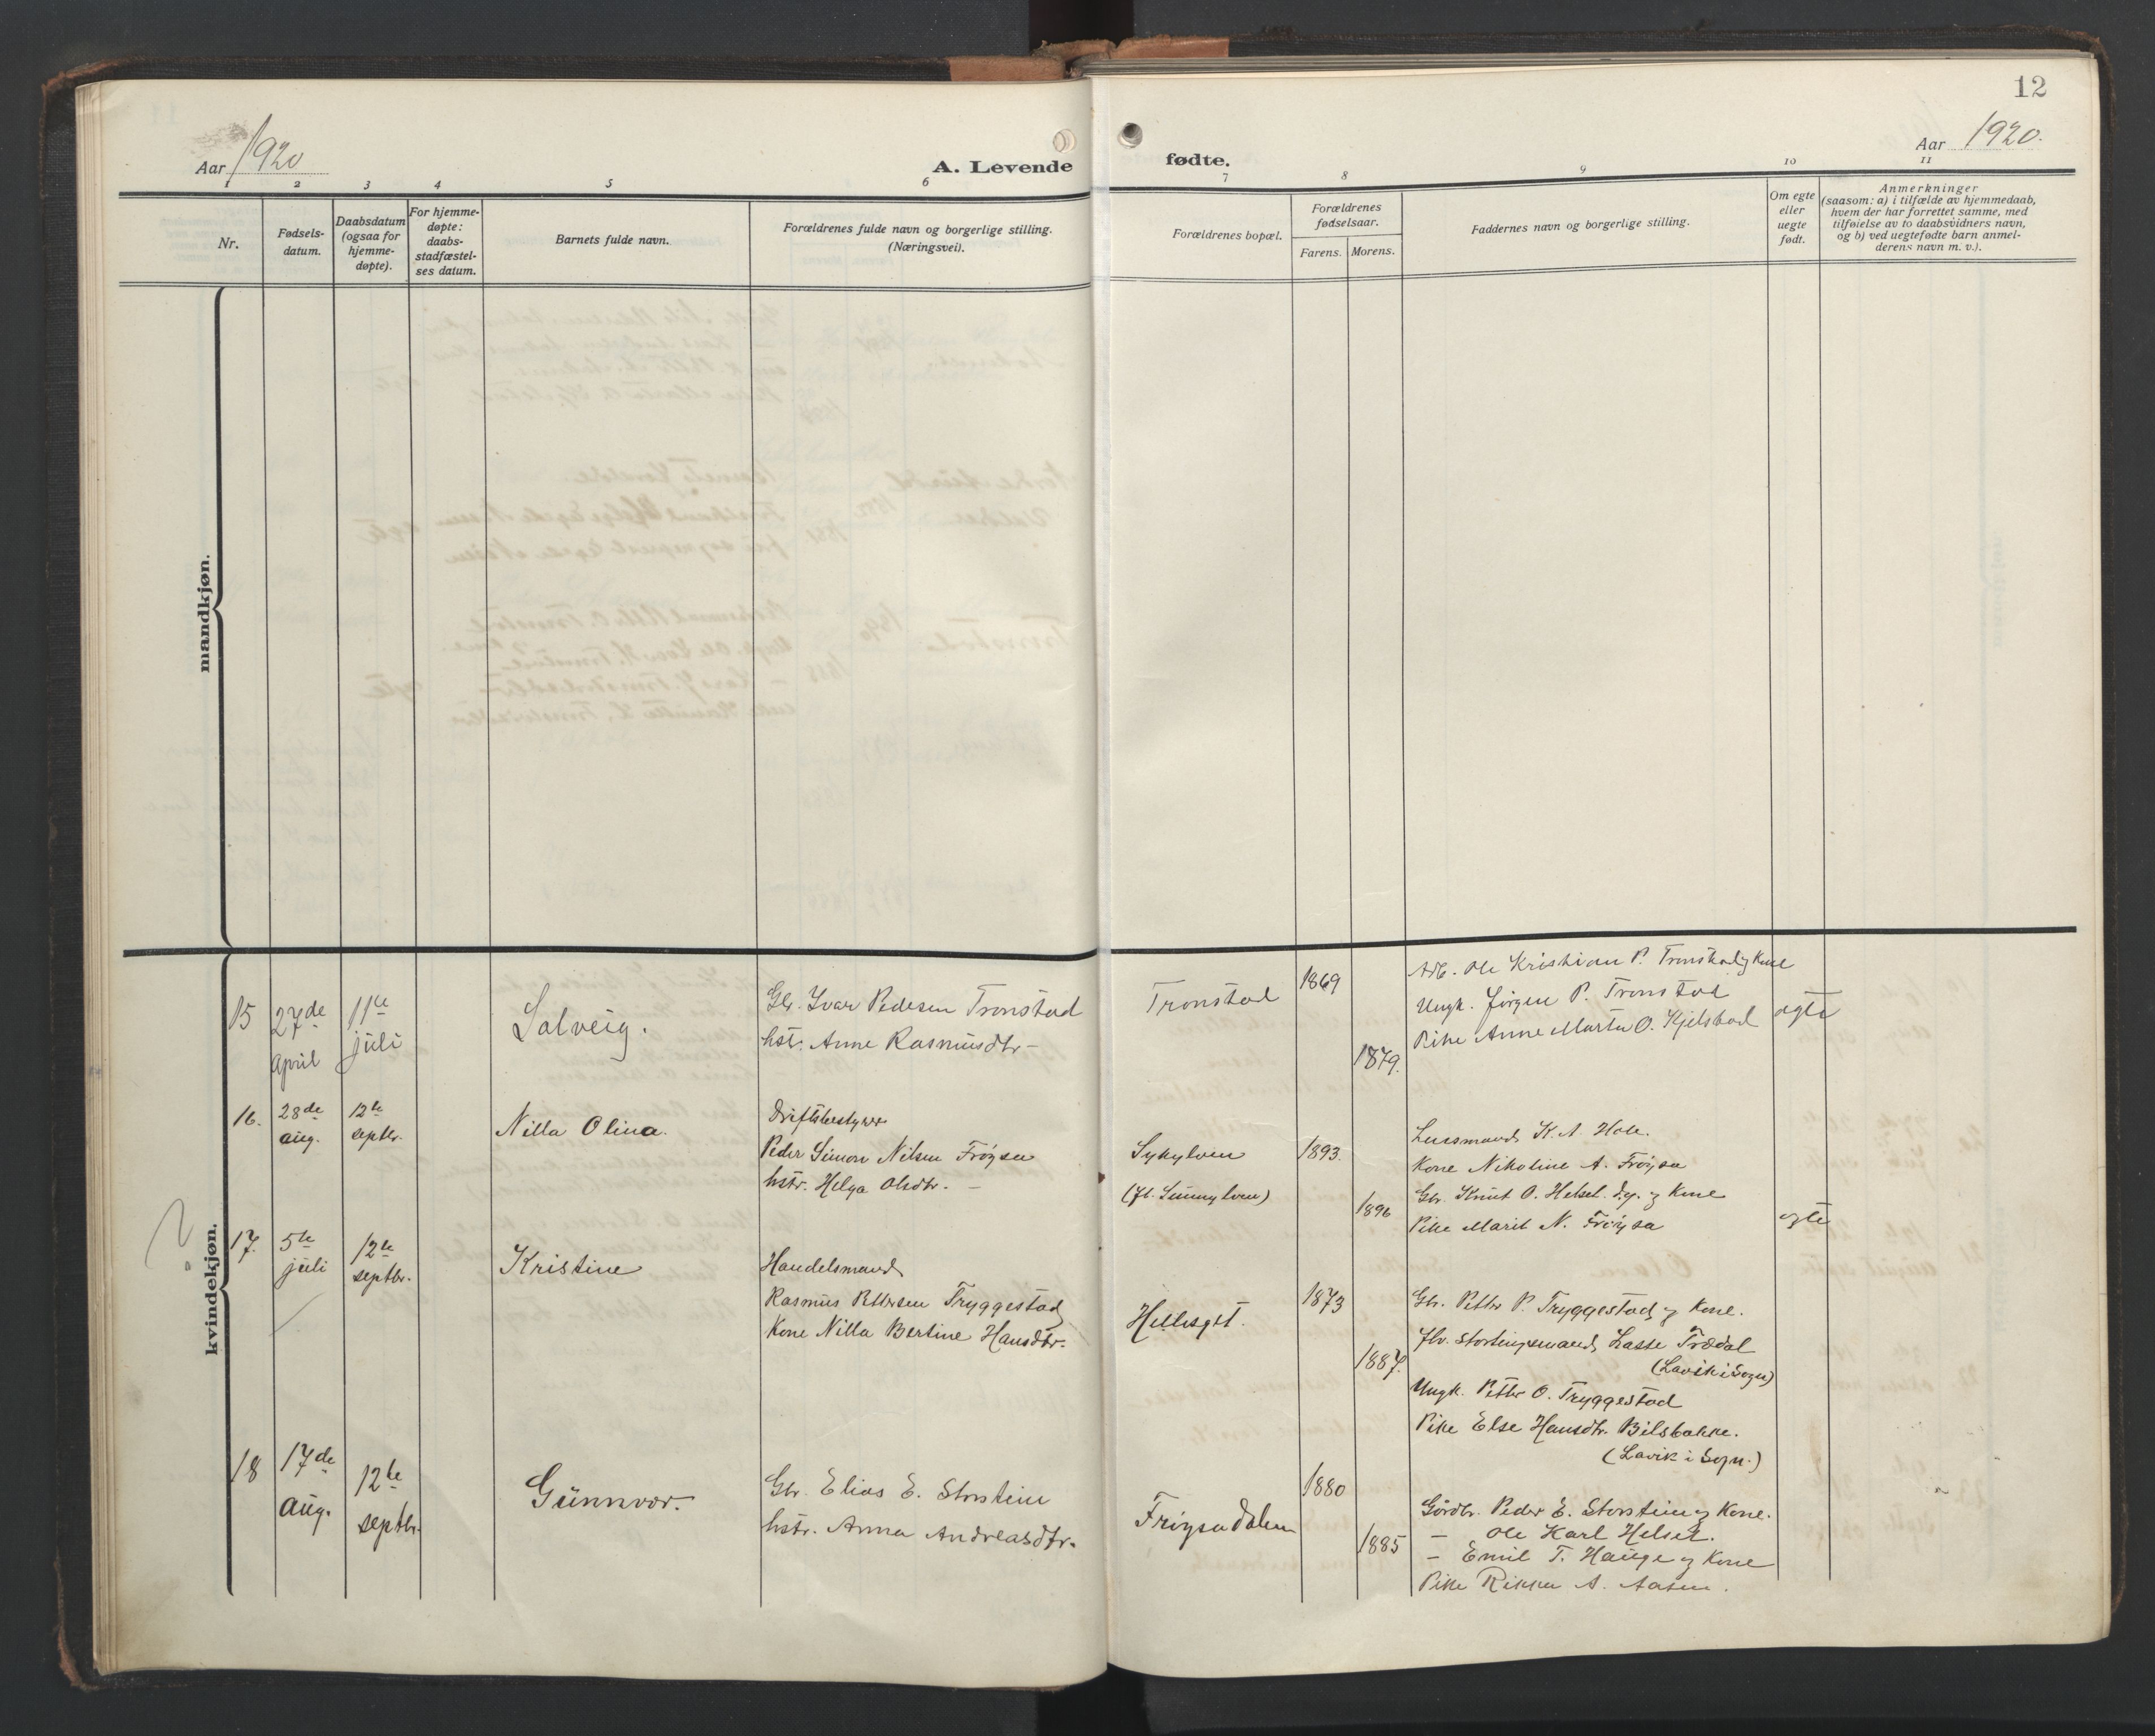 12
Aar 1920
A. Levende fødte.
Aar 1920.
1 2 3 4 5 6 7 8 9 10 11
Nr.
Fødsels-
datum.
Daabsdatum
(ogsaa for
hjemme-
døpte).
For hjemme-
døpte:
daabs-
stadfæstel-
ses datum.
Barnets fulde navn.
Forældrenes fulde navn og borgerlige stilling.
(Næringsvei).
Forældrenes bopæl.
Forældrenes
fødselsaar.
Farens. Morens.
Faddernes navn og borgerlige stilling.
Om egte
eller
uegte
født.
Anmerkninger
(saasom: a) i tilfælde av hjemmedaab,
hvem der har forrettet samme, med
tilføielse av to daabsvidners navn,
og b) ved uegtefødte barn anmel-
derens navn m. v.).
mandkjøn.
kvindekjøn.
15
27de
april
11te
juli
Solveig.
Gbr. Ivar Pedersen Tronstad
hstr. Anne Rasmusdtr.
Tronstad
1869
1879.
Arb. Ole Kristian P. Tronstad og Kone
Ungk. Jørgen P. Tronstad
Pike Anne Marta O. Hjelstad
egte
16.
28de
aug.
12te
septbr.
Nilla Olina.
Driftsbestyrer
Peder Simon Nilsen Frøysa
hstr. Helga Olsdtr.
Sykylven
(fl. Sunnylven)
1893.
1896
Lensmand K. A. Hole.
Kone Nikoline A. Frøysa
Gbr. Knut O. Helset og Kone
Pike Marit N. Frøysa
egte
17.
5te
juli
12te
septbr.
Kristine
Handelsmand
Rasmus Pettersen Tryggestad
Kone Nilla Bertine Hansdtr.
Hellesylt.
1873
1887.
Gbr. Petter P. Tryggestad og Kone.
fhv. Stortingsmand Lasse Trædal
(Lavik i Sogn)
Ungk. Petter O. Tryggestad
Pike Else Hansdtr. Bilsbakke.
(Lavik i Sogn.)
18
17de
aug.
12te
septbr.
Gunnvor.
Gbr. Elias E. Storstein
hstr. Anna Andreasdtr.
Frøysadalen
1880
1885
Gårdbr. Peder E. Storstein og Kone.
— Ole Karl Helset.
— Emil T. Hauge og Kone
Pike Rikka A. Aasen.